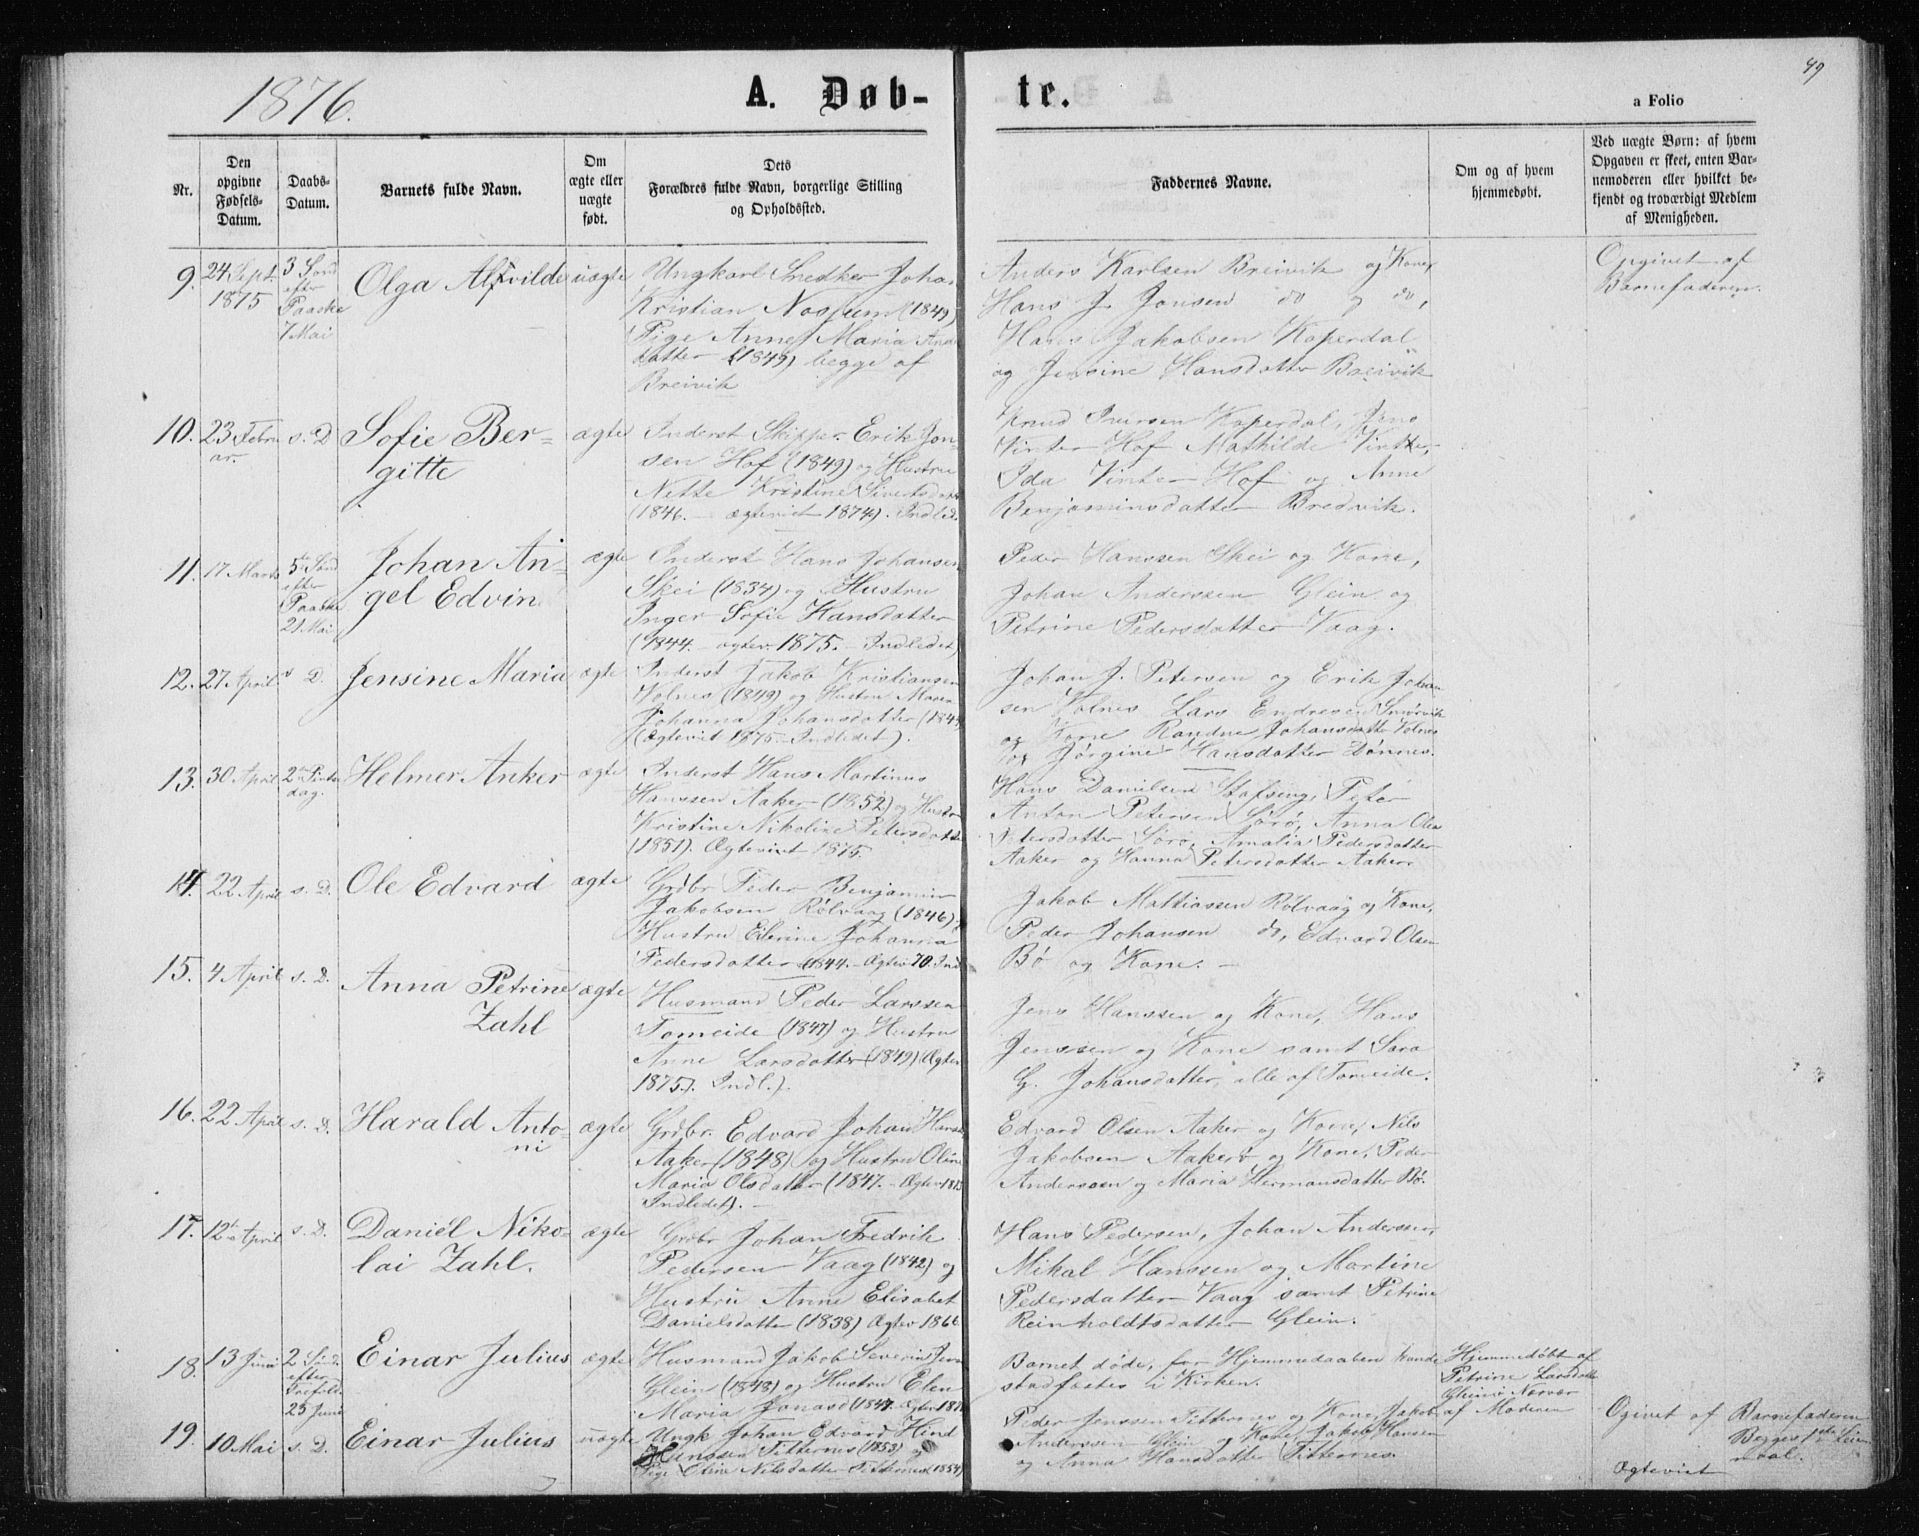 49
1876.
A. Døb-
te.
a Folio
Nr.
Den
opgivne
Fødsels-
Datum.
Daabs-
Datum.
Barnets fulde Navn.
Om
ægte eller
uægte
født.
Dets
Forældres fulde Navn, borgerlige Stilling
og Opholdssted.
Faddernes Navne.
Om og af hvem
hjemmedøbt.
Ved uægte Børn: af hvem
Opgaven er skeet, enten Bar-
nemoderen eller hvilket be-
kjendt og troværdigt Medlem
af Menigheden.
9.
24 Sept.
1875
3 Sønd
efter
Paaske
7 Mai
Olga Alfvilde
uægte
Ungkarl Snedker Johan
Kristian Nossum (1849)
Pige Anne Maria
datter (1849) begge af
Breivik
Anders Karlsen Breivik og Kone,
Hans J. Jonsen do og do,
Hans Jakobsen Koperdal
og Jensine Hansdatter Breivik
Opgivet af
Barnefaderen.
10.
23 Febru
ar.
s. D
Sofie Ber-
gitte
ægte
Inderst Skipper Erik Jon-
sen Hof (1849) og Hustru
Nette Kristine Sivertsdatt
(1846. — ægteviet 1874). Indled.
Knud Iversen Koperdal, Jens
Vinter Hof Mathilde Vinter,
Ida Vinter Hof og Anne
Benjaminsdatter Bredvik.
11.
17 Marts
5te Sønd
efter
Paaske
21 Mai
Johan An-
gel Edvin
ægte
Inderst Hans Johansen
Skei (1834) og Hustru
Inger Sofie Hansdatter
(1844. — ægtev. 1875. — Indledet)
Peder Hanssen Skei og Kone,
Johan Anderssen Glein og
Petrine Pedersdatter Vaag.
12.
27 April
s D.
Jensine Maria
ægte
Inderst Jakob Kristiansen
Volnes (1849) og Hustru Maren
Johanna Johansdatter (1849
(Ægteviet 1875 — Indledet).
Johan J. Petersen og Erik Johan
sen Volnes Lars Endresen Smørvik
og Kone Randine Johansdatter Volnes
og Jørgine Hansdatter Dønnes.
13.
30 April
2den Pintse
dag.
Helmer Anker
ægte
Inderst Hans Martinus
Hanssen Aaker (1852) og Hustru
Kristine Nikoline Petersdatter
(1851). Ægteviet 1875.
Hans Danielsen Stafseng, Peter
Anton Petersen Sørø, Anna Olea
Petersdatter Sørø, Amalia Pedersdatter
Aaker og Hanna Petersdatter Aaker.
14.
22 April
s. D.
Ole Edvard
ægte
Grdbr Peder Benjamin
Jakobsen Rølvaag (1846) og
Hustru Ellerine Johanna
Pedersdatter (1844. — Ægtev 70 Ind
Jakob Mathiassen Rølvaag og Kone,
Peder Johansen do, Edvard Olsen
Bø og Kone. —
15.
4 April
s. D.
Anna Petrine
Zahl
ægte
Husmand Peder Larssen
Tomeide (1847) og Hustru
Anne Larsdatter (1849) (Ægtev
1875). Indl.).
Jens Hanssen og Kone, Hans
Jenssen og Kone samt Sara
G. Johansdatter, alle af Tomeide.
16.
22 April
s. D.
Harald Anto-
ni
ægte
Grdbr. Edvard Johan Hans
Aaker (1848) og Hustru Oline
Maria Olsdatter (1847. — Ægtev 1873
Indledet). —
Edvard Olsen Aaker og Kone, Nils
Jakobsen Aakerø og Kone, Peder
Anderssen og Maria Hermansdatter Bø.
17.
12te April
s. D.
Daniel Niko-
lai Zahl.
ægte
Grdbr Johan Fredrik
Pedersen Vaag (1842) og
Hustru Anne Elisabet
Danielsdatter (1838) Ægtev 186
Hans Pedersen, Johan Anderssen,
Mikal Hanssen og Martine
Pedersdatter Vaag samt Petrine
Reinholdtsdatter Glein.
18.
13 Juni
2 Sønd.
efter
Trefold.
25 Juni
Einar Julius
ægte
Husmand Jakob Severin Jens
Glein (1848) og Hustru Elen
Maria Jonasd (1847. Ægtev 187
Barnet døde, før Hjemmedaaben kunde
stadfæstes i Kirken.
Hjemmedøbt af
Petrine Larsdatte
Gleinø Nærvær
af Moderen
19.
10 Mai
s. D.
Einar Julius
uægte
Ungk Johan Edvard Hind
Henssen Titternes (1853) og
Pige Elina Nilsdatter Titternes (1854)
Peder Jenssen Titternes og Kone, Jakob
Anderssen Glein og Kone, Jakob Hansen
og Anna Hansdatter Titternes.
Ogivet af Barnefaderen
Begges 1ste Leier
maal.
Ægteviet